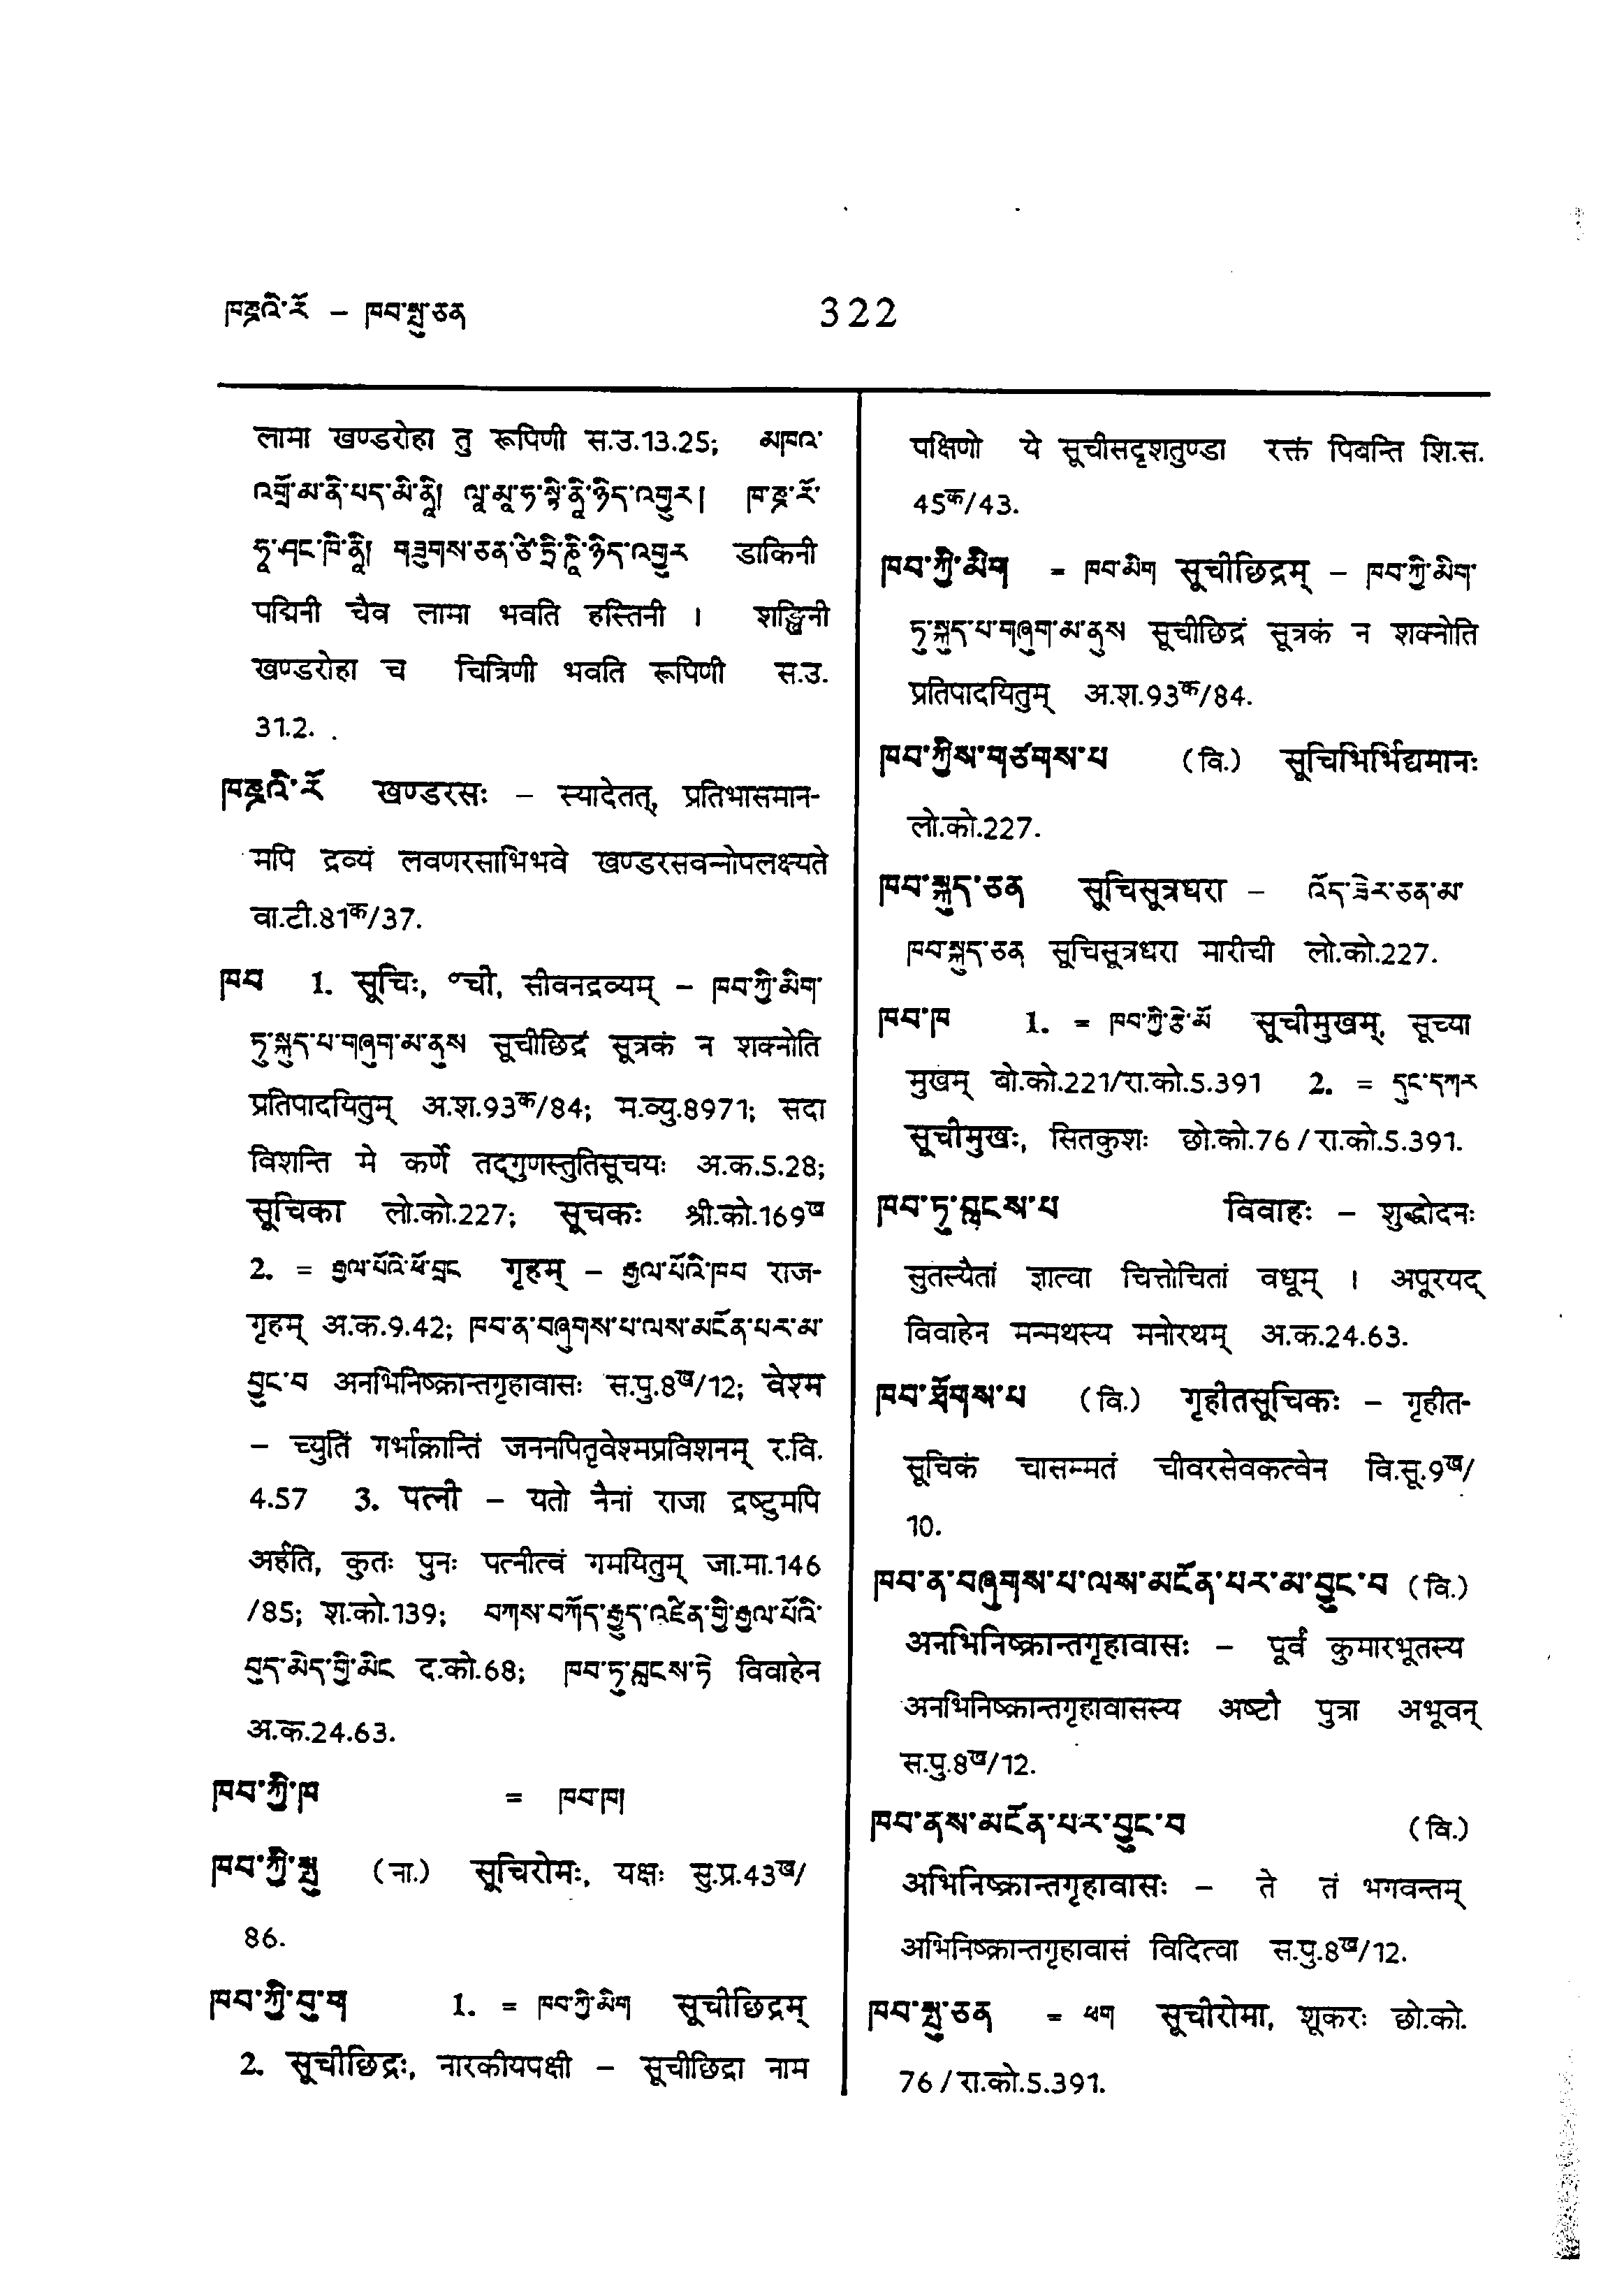 ཁནྜའི་རོ – ཁབ་སྤུ་ཅན 322
लामा खण्डरोहा तु रूपिणी स.उ.13.25; མཁའ་
འགྲོ་མ་ནི་པད་མི་ནཱི། ལཱ་མཱ་ཧ་སྟི་ནཱི་ཉིད་འགྱུར། ཁ་ནྜ་རོ་
ཧཱ་ཤང་ཁི་ནཱི། གཟུགས་ཅན་ཙི་ཏྲི་ཎཱི་ཉིད་འགྱུར डाकिनी
पद्मिनी चैव लामा भवति हस्तिनी । शङ्खिनी
खण्डरोहा च चित्रिणी भवति रूपिणी स.उ.
31.2.
ཁནྜའི་རོ खण्डरसः – स्यादेतत्, प्रतिभासमान-
मपि द्रव्यं लवणरसाभिभवे खण्डरसवन्नोपलक्ष्यते
वा.टी.81क/37.
ཁབ 1. सूचिः, ॰ची, सीवनद्रव्यम् – ཁབ་ཀྱི་མིག་
ཏུ་སྐུད་པ་གཞུག་མ་ནུས सूचीछिद्रं सूत्रकं न शक्नोति
प्रतिपादयितुम् अ.श.93क/84; म.व्यु.8971; सदा
विशन्ति मे कर्णे तद्गुणस्तुतिसूचयः अ.क.5.28;
सूचिका लो.को.227; सूचकः श्री.को.169ख
2. = རྒྱལ་པོའི་ཕོ་བྲང गृहम् – རྒྱལ་པོའི་ཁབ राज-
गृहम् अ.क.9.42; ཁབ་ན་བཞུགས་པ་ལས་མངོན་པར་མ་
བྱུང་བ अनभिनिष्क्रान्तगृहावासः स.पु.8ख/12; वेश्म
– च्युतिं गर्भाक्रान्तिं जननपितृवेश्मप्रविशनम् र.वि.
4.57 3. पत्नी – यतो नैनां राजा द्रष्टुमपि
अर्हति, कुतः पुनः पत्नीत्वं गमयितुम् जा.मा.146
/85; श.को.139; བཀས་བཀོད་རྒྱུད་འཛིན་གྱི་རྒྱལ་པོའི་
བུད་མེད་གྱི་མིང द.को.68; ཁབ་ཏུ་བླངས་ཏེ विवाहेन
अ.क.24.63.
ཁབ་ཀྱི་ཁ = ཁབ་ཁ།
ཁབ་ཀྱི་སྤུ (ना.) सूचिरोमः, यक्षः सु.प्र.43ख/
86.
ཁབ་ཀྱི་བུ་ག 1. = ཁབ་ཀྱི་མིག सूचीछिद्रम्
2. सूचीछिद्रः, नारकीयपक्षी – सूचीछिद्रा नाम
पक्षिणो ये सूचीसदृशतुण्डा रक्तं पिबन्ति शि.स.
45क/43.
ཁབ་ཀྱི་མིག = ཁབ་མིག सूचीछिद्रम् – ཁབ་ཀྱི་མིག་
ཏུ་སྐུད་པ་གཞུག་མ་ནུས सूचीछिद्रं सूत्रकं न शक्नोति
प्रतिपादयितुम् अ.श.93क/84.
ཁབ་ཀྱིས་གཙགས་པ (वि.) सूचिभिर्भिद्यमानः
लो.को.227.
ཁབ་སྐུད་ཅན सूचिसूत्रधरा – འོད་ཟེར་ཅན་མ་
ཁབ་སྐུད་ཅན सूचिसूत्रधरा मारीची लो.को.227.
ཁབ་ཁ 1. = ཁབ་ཀྱི་རྩེ་མོ सूचीमुखम्, सूच्या
मुखम् बो.को.221/रा.को.5.391 2. = དུང་དཀར
सूचीमुखः, सितकुशः छो.को.76/रा.को.5.391.
ཁབ་ཏུ་བླངས་པ विवाहः – शुद्धोदनः
सुतस्यैतां ज्ञात्वा चित्तोचितां वधूम् । अपूरयद्
विवाहेन मन्मथस्य मनोरथम् अ.क.24.63.
ཁབ་ཐོགས་པ (वि.) गृहीतसूचिकः – गृहीत-
सूचिकं चासम्मतं चीवरसेवकत्वेन वि.सू.9ख/
10.
ཁབ་ན་བཞུགས་པ་ལས་མངོན་པར་མ་བྱུང་བ (वि.)
अनभिनिष्क्रान्तगृहावासः – पूर्वं कुमारभूतस्य
अनभिनिष्क्रान्तगृहावासस्य अष्टौ पुत्रा अभूवन्
स.पु.8ख/12.
ཁབ་ནས་མངོན་པར་བྱུང་བ (वि.)
अभिनिष्क्रान्तगृहावासः – ते तं भगवन्तम्
अभिनिष्क्रान्तगृहावासं विदित्वा स.पु.8ख/12.
ཁབ་སྤུ་ཅན = ཕག सूचीरोमा, शूकरः छो.को.
76/रा.को.5.391.